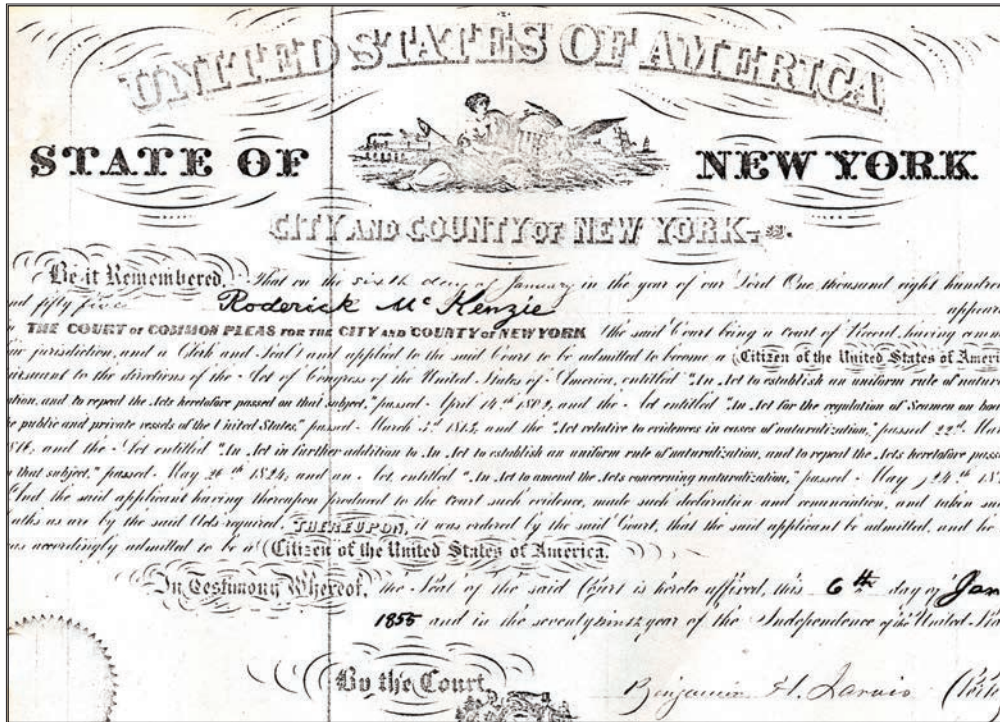 UNITED STATES OF AMERICA
STATE OF NEW YORK
CITY AND COUNTY OF NEW YORK, ss.
Be it Remembered, That on the sixth day of January in the year of our Lord One thousand eight hundre
nd fifty five Roderick McKenzie appear
THE COURT OF COMMON PLEAS FOR THE CITY AND COUNTY OF NEW YORK (the said Court being a Court of Record, having
jurisdiction, and a Clerk and Seal) and applied to the said Court to be admitted to become a Citizen of the United States of Ameri
ursuant to the directions of the Act of Congress of the United States of America, entitled "An Act to establish an uniform rule of natura
ation, and to repeal the Acts heretofore passed on that subject," passed April 14th 1802, and the Act entitled "An Act for the regulation of Seamen on boa
e public and private vessels of the United States," passed March 3d 1813, and the "Act relative to evidences in cases of naturalization," passed 22d Mar
816, and the Act entitled "An Act in further addition to An Act to establish an uniform rule of naturalization, and to repeal the Acts heretofore passe
n that subject," passed May 26th 1824, and an Act entitled "An Act to amend the Acts concerning naturalization," passed May 24th 182
And the said applicant having thereupon produced to the Court such evidence, made such declaration and renunciation, and taken suc
oaths as are by the said Acts required, THEREUPON, it was ordered by the said Court, that the said applicant be admitted, and he
as accordingly admitted to be a Citizen of the United States of America.
In Testimony Whereof, the Seal of the said Court is hereto affixed, this 6th day of Jan
1855 and in the seventy ninth year of the Independence of the United Sta
By the Court,
Benjamin H. Jarvis Clerk